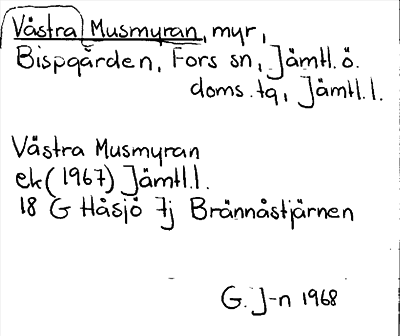 Västra Musmyran, myr,
Bispgården, Fors sn, Jämtl. ö.
doms. tg, Jämtl. l.
Västra Musmyran
ek (1967) Jämtl. l.
18 G Håsjö 7j Brännåstjärnen
G. J-n 1968